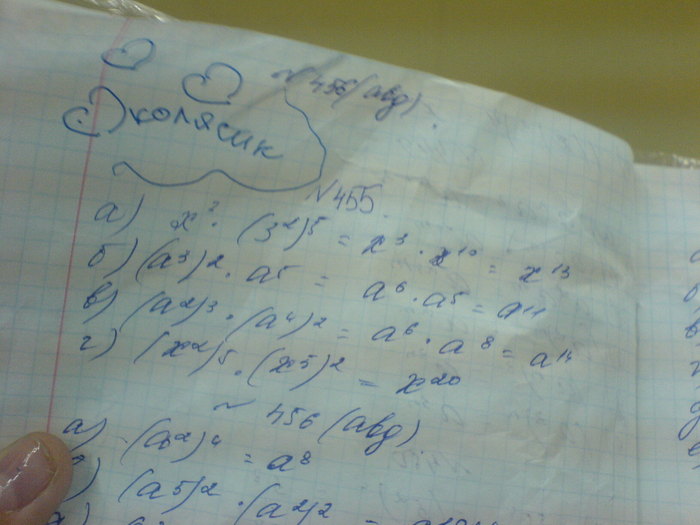 № 456 (авд).
Эколясик
№ 455.
а) x³ · (3²)⁵ = x³ · x¹⁰ = x¹³
б) (a³)² · a⁵ = a⁶ · a⁵ = a¹¹
в) (a²)³ · (a⁴)² = a⁶ · a⁸ = a¹⁴
г) (x²)⁵ · (x⁵)² = x²⁰
№ 456 (авд)
а) (a²)⁴ = a⁸
(a⁵)² · (a²)²